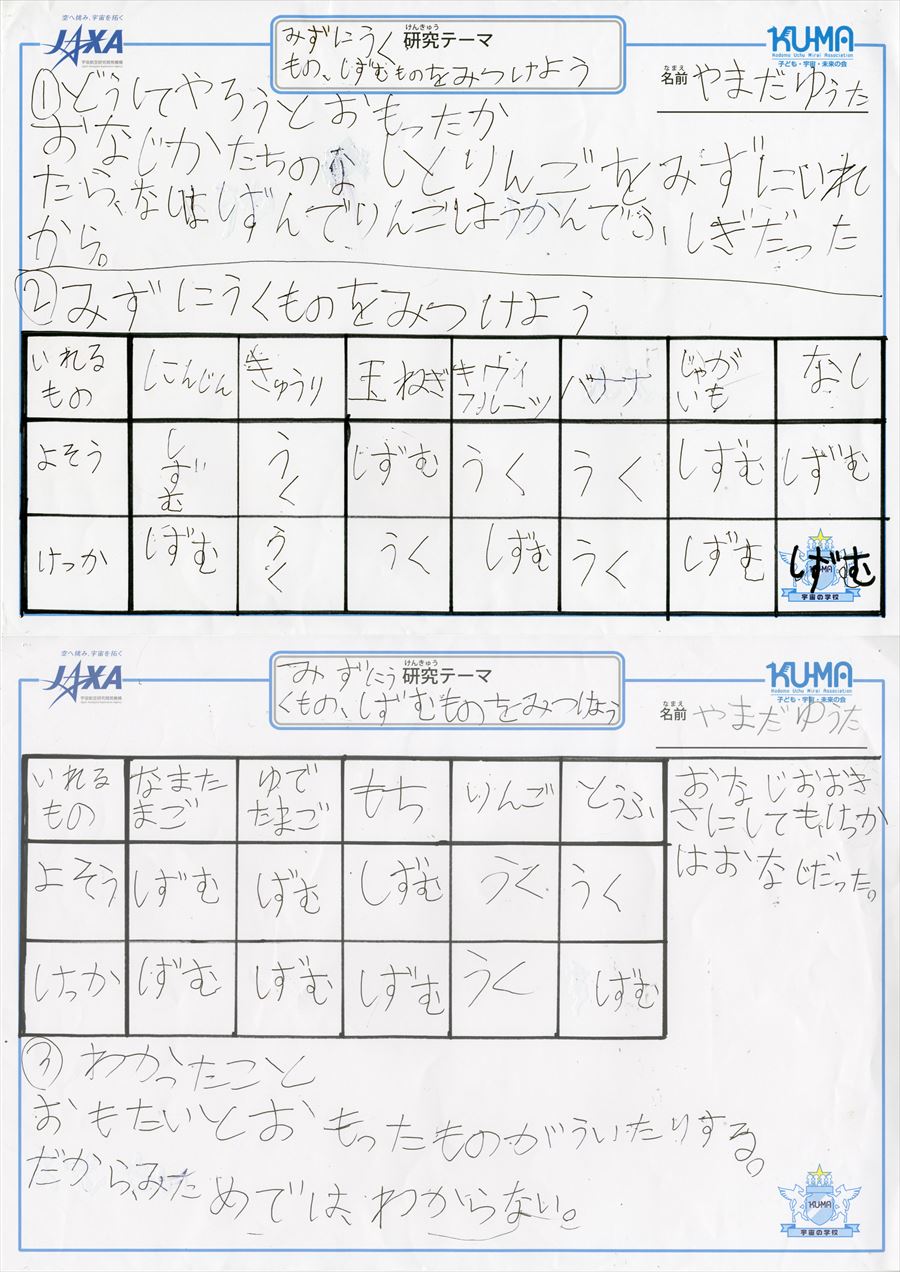 空へ挑み、宇宙を拓く
JAXA
宇宙航空研究開発機構
みずにうく
けんきゅう
研究テーマ
もの、しずむものをみつけよう
KUMA
Kodomo Uchu Mirai Association
子ども・宇宙・未来の会
なまえ
名前 やまだゆうた
①どうしてやろうとおもったか
おなじかたちのなしとりんごをみずにいれ
たら、なしはしずんでりんごはうかんでふしぎだった
から。
②みずにうくものをみつけよう
いれるもの にんじん きゅうり 玉ねぎ キウィフルーツ バナナ じゃがいも なし
よそう しずむ うく しずむ うく うく しずむ しずむ
けっか しずむ うく うく しずむ うく しずむ しずむ
KUMA
宇宙の学校
空へ挑み、宇宙を拓く
JAXA
宇宙航空研究開発機構
みずにう
けんきゅう
研究テーマ
くもの、しずむものをみつけよう
KUMA
Kodomo Uchu Mirai Association
子ども・宇宙・未来の会
なまえ
名前 やまだゆうた
いれるもの なまたまご ゆでたまご もち りんご とうふ
よそう しずむ しずむ しずむ うく うく
けっか しずむ しずむ しずむ うく しずむ
おなじおおき
さにしても、けっか
はおなじだった。
③わかったこと
おもたいとおもったものがういたりする。
だから、みためでは、わからない。
KUMA
宇宙の学校